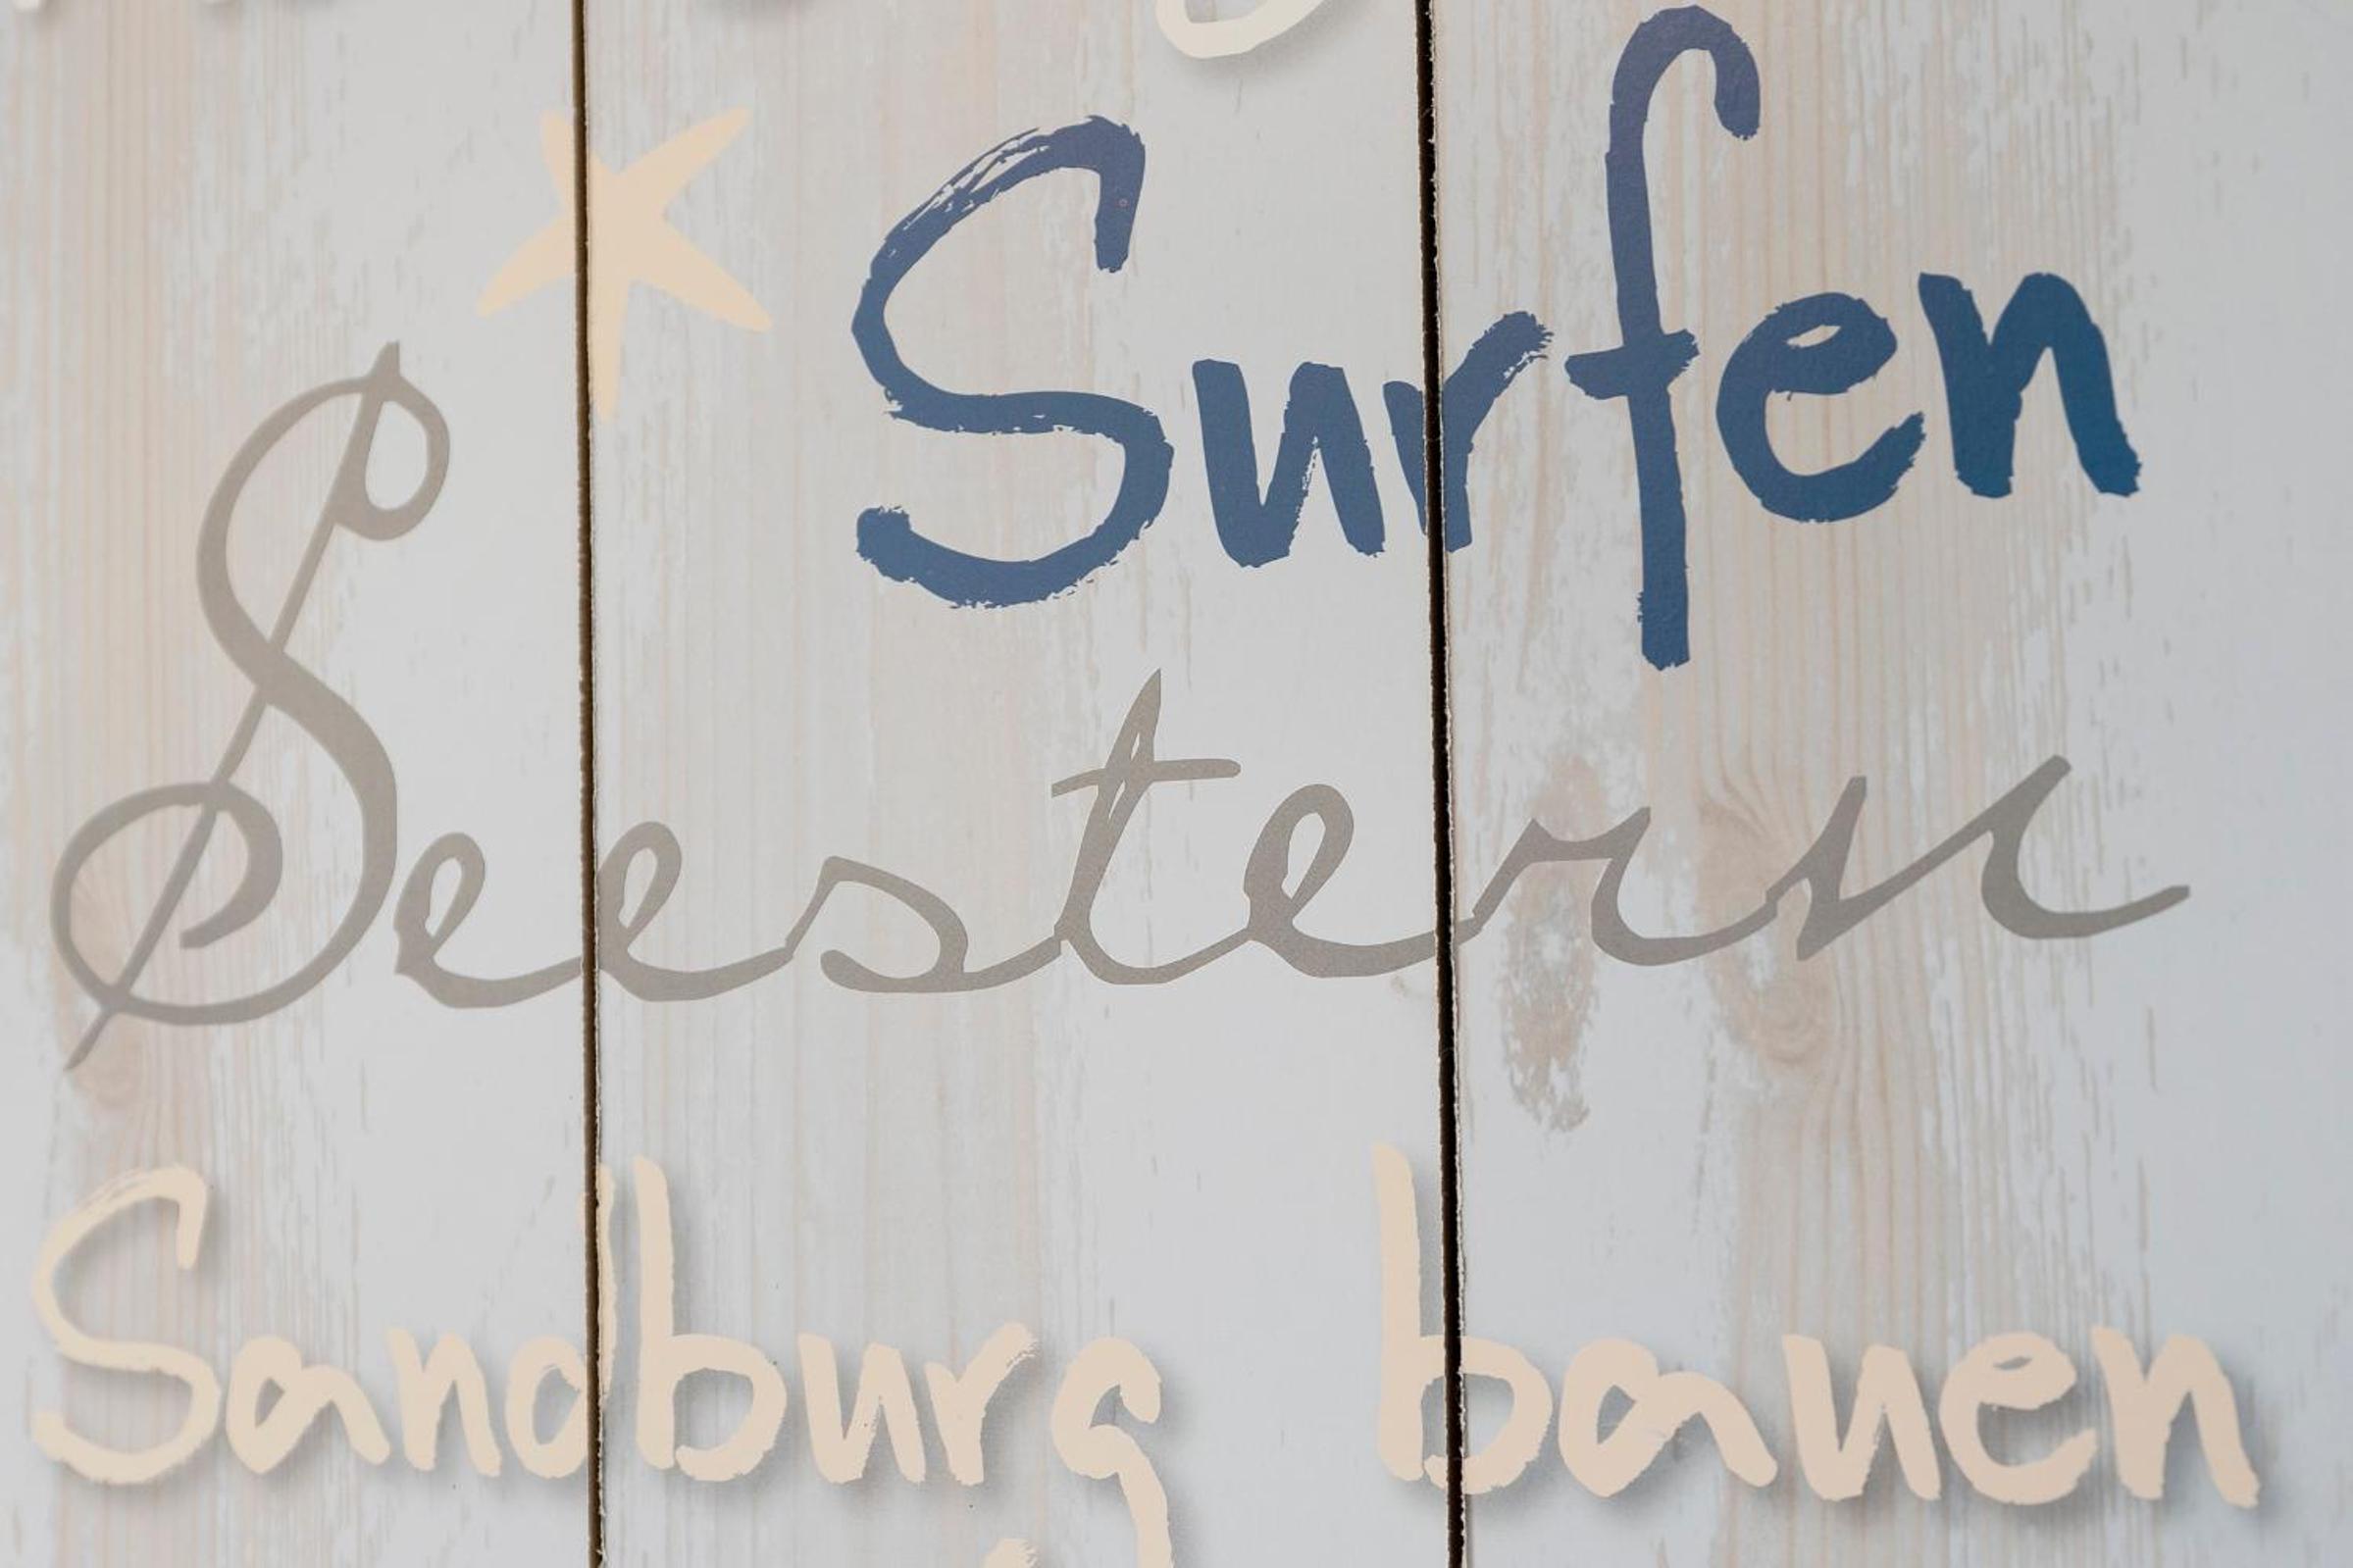 Surfen
Seestern
Sandburg bauen